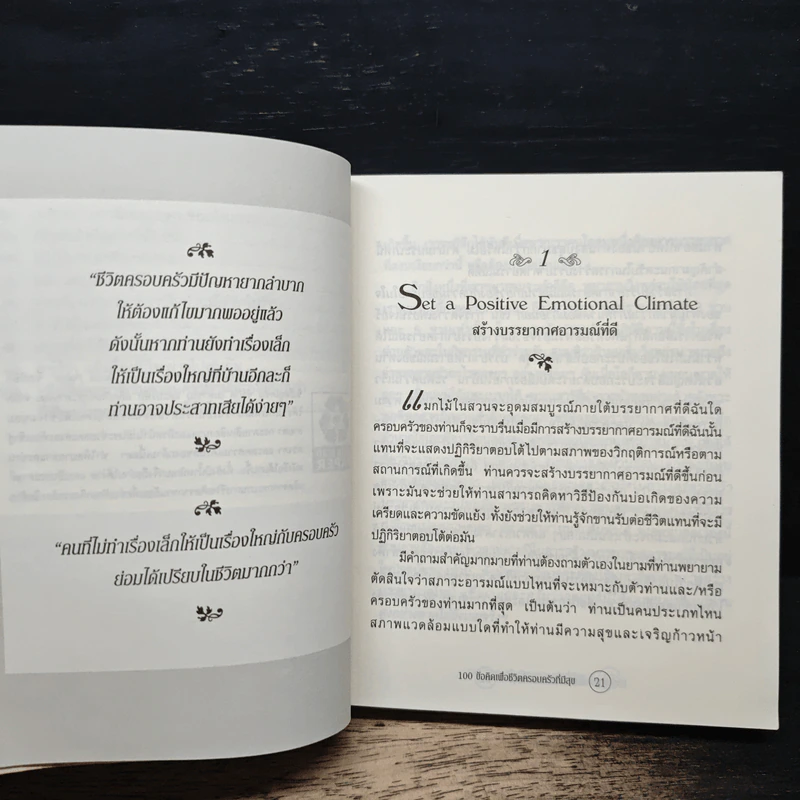 “ชีวิตครอบครัวมีปัญหายากลำบาก
ให้ต้องแก้ไขมากพออยู่แล้ว
ดังนั้นหากท่านยังทำเรื่องเล็ก
ให้เป็นเรื่องใหญ่ที่บ้านอีกละก็
ท่านอาจประสาทเสียได้ง่ายๆ”
“คนที่ไม่ทำเรื่องเล็กให้เป็นเรื่องใหญ่กับครอบครัว
ย่อมได้เปรียบในชีวิตมากกว่า”
1
Set a Positive Emotional Climate
สร้างบรรยากาศอารมณ์ที่ดี
แมกไม้ในสวนจะอุดมสมบูรณ์ภายใต้บรรยากาศที่ดีฉันใด
ครอบครัวของท่านก็จะราบรื่นเมื่อมีการสร้างบรรยากาศอารมณ์ที่ดีฉันนั้น
แทนที่จะแสดงปฏิกิริยาตอบโต้ไปตามสภาพของวิกฤติการณ์หรือตาม
สถานการณ์ที่เกิดขึ้น ท่านควรจะสร้างบรรยากาศอารมณ์ที่ดีขึ้นก่อน
เพราะมันจะช่วยให้ท่านสามารถคิดหาวิธีป้องกันบ่อเกิดของความ
เครียดและความขัดแย้ง ทั้งยังช่วยให้ท่านรู้จักขานรับต่อชีวิตแทนที่จะมี
ปฏิกิริยาตอบโต้ต่อมัน
มีคำถามสำคัญมากมายที่ท่านต้องถามตัวเองในยามที่ท่านพยายาม
ตัดสินใจว่าสภาวะอารมณ์แบบไหนที่จะเหมาะกับตัวท่านและ/หรือ
ครอบครัวของท่านมากที่สุด เป็นต้นว่า ท่านเป็นคนประเภทไหน
สภาพแวดล้อมแบบใดที่ทำให้ท่านมีความสุขและเจริญก้าวหน้า
100 ข้อคิดเพื่อชีวิตครอบครัวที่มีสุข 21